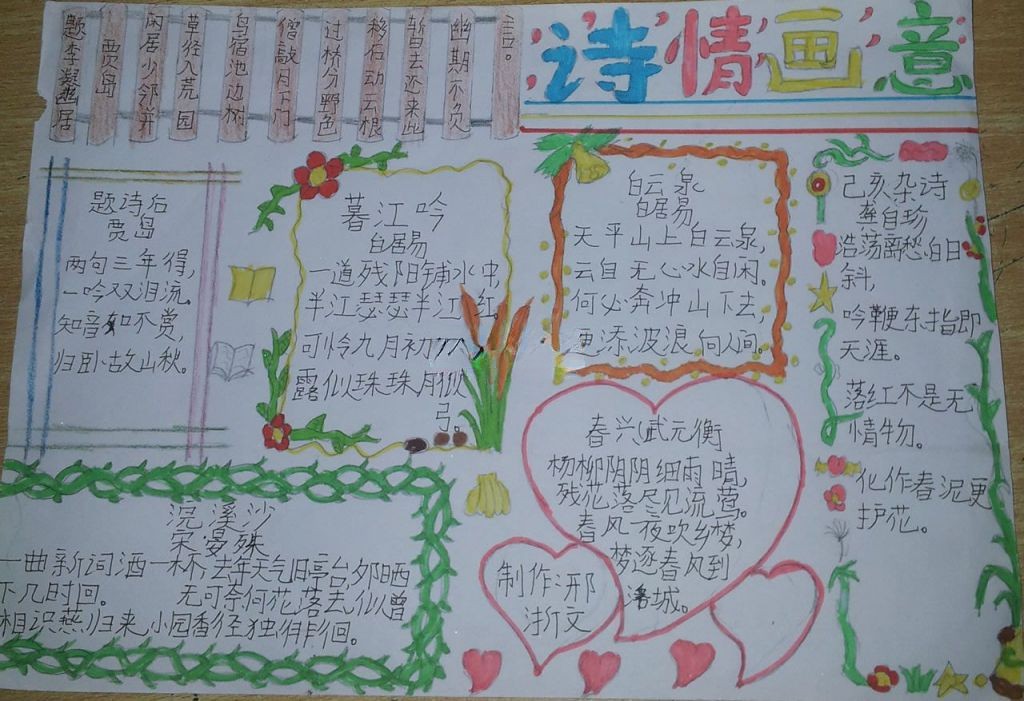 诗情画意
题李凝幽居
贾岛
闲居少邻并
草径入荒园
鸟宿池边树
僧敲月下门
过桥分野色
移石动云根
暂去还来此
幽期不负
言。
题诗后
贾岛
两句三年得，
一吟双泪流。
知音如不赏，
归卧故山秋。
暮江吟
白居易
一道残阳铺水中，
半江瑟瑟半江红。
可怜九月初
露似珠珠月似
弓。
白云泉
白居易
天平山上白云泉，
云自无心水自闲。
何必奔冲山下去，
更添波浪向人间。
己亥杂诗
龚自珍
浩荡离愁白日
斜，
吟鞭东指即
天涯。
落红不是无
情物。
化作春泥更
护花。
浣溪沙
宋晏殊
一曲新词酒一杯，去年天气旧亭台，夕晒
下几时回。 无可奈何花落去，似曾
相识燕归来，小园香径独徘徊。
春兴（武元衡
杨柳阴阴细雨晴，
残花落尽见流莺。
春风一夜吹乡梦，
梦逐春风到
洛城。
制作：邢
浙文